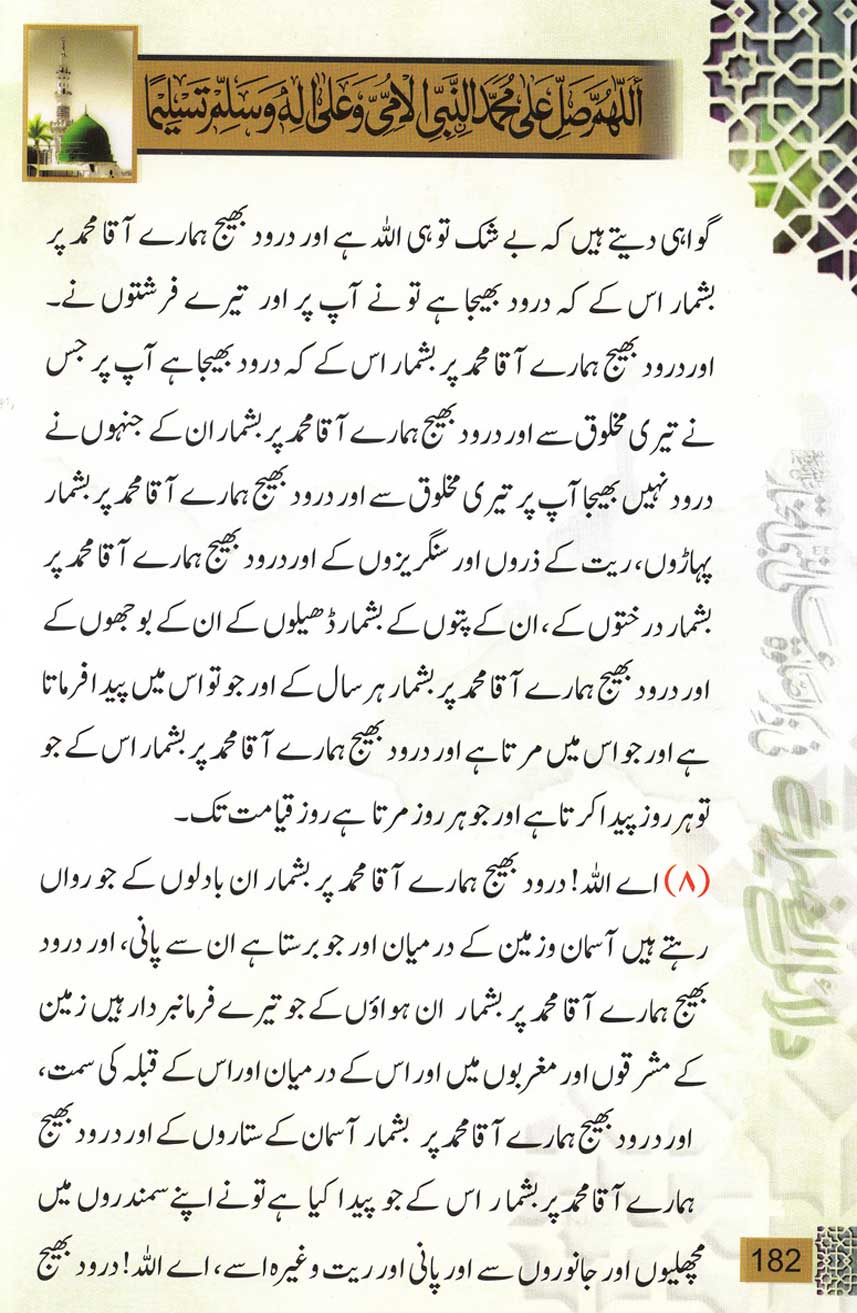 اَللّٰهُمَّ صَلِّ عَلٰی مُحَمَّدِ النَّبِیِّ الْاُمِّیِّ وَعَلٰی اٰلِهٖ وَسَلِّمْ تَسْلِیْمًا
گواہی دیتے ہیں کہ بے شک تو ہی اللہ ہے اور درود بھیج ہمارے آقا محمد پر
بشمار اس کے کہ درود بھیجا ہے تو نے آپ پر اور تیرے فرشتوں نے۔
اور درود بھیج ہمارے آقا محمد پر بشمار اس کے کہ درود بھیجا ہے آپ پر جس
نے تیری مخلوق سے اور درود بھیج ہمارے آقا محمد پر بشمار ان کے جنہوں نے
درود نہیں بھیجا آپ پر تیری مخلوق سے اور درود بھیج ہمارے آقا محمد پر بشمار
پہاڑوں، ریت کے ذروں اور سنگریزوں کے اور درود بھیج ہمارے آقا محمد پر
بشمار درختوں کے، ان کے پتوں کے بشمار ڈھیلوں کے ان کے بوجھوں کے
اور درود بھیج ہمارے آقا محمد پر بشمار ہر سال کے اور جو تو اس میں پیدا فرماتا
ہے اور جو اس میں مرتا ہے اور درود بھیج ہمارے آقا محمد پر بشمار اس کے جو
تو ہر روز پیدا کرتا ہے اور جو ہر روز مرتا ہے روز قیامت تک۔
(۸) اے اللہ! درود بھیج ہمارے آقا محمد پر بشمار ان بادلوں کے جو رواں
رہتے ہیں آسمان وزمین کے درمیان اور جو برستا ہے ان سے پانی، اور درود
بھیج ہمارے آقا محمد پر بشمار ان ہواؤں کے جو تیرے فرمانبردار ہیں زمین
کے مشرقوں اور مغربوں میں اور اس کے درمیان اور اس کے قبلہ کی سمت،
اور درود بھیج ہمارے آقا محمد پر بشمار آسمان کے ستاروں کے اور درود بھیج
ہمارے آقا محمد پر بشمار اس کے جو پیدا کیا ہے تو نے اپنے سمندروں میں
مچھلیوں اور جانوروں سے اور پانی اور ریت وغیرہ اسے، اے اللہ! درود بھیج
182
دلائل الخیرات